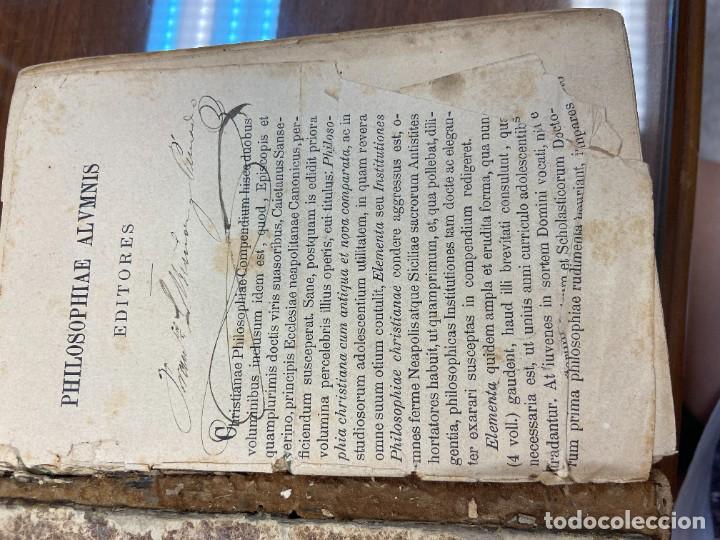 PHILOSOPHIAE ALVMNIS
EDITORES
Christianae Philosophiae Compendium hisce duobus
voluminibus inclusum idem est, quod, Episcopis et
quamplurimis doctis viris suasoribus, Caietanus Sanse-
verino, principis Ecclesiae neapolitanae Canonicus, per-
ficiendum susceperat. Sane, postquam is edidit priora
volumina percelebris illius operis, cui titulus: Philoso-
phia christiana cum antiqua et nova comparata, ac in
studiosorum adolescentium utilitatem, in quam revera
omne suum otium contulit, Elementa seu Institutiones
Philosophiae christianae condere aggressus est, o-
mnes ferme Neapolis atque Siciliae sacrorum Antistites
hortatores habuit, ut quamprimum, et, qua pollebat, dili-
gentia, philosophicas Institutiones tam docte ac elegan-
ter exarari susceptas in compendium redigeret.
Elementa quidem ampla et erudita forma, qua nunc
(4 voll.) gaudent, haud illi brevitati consulunt, qua
necessaria est, ut unius anni curriculo adolescentibus
tradantur. At iuvenes in sortem Domini vocati, et Scholasticorum Docto-
rum prima philosophiae rudimenta hauriant, impares
todocoleccion